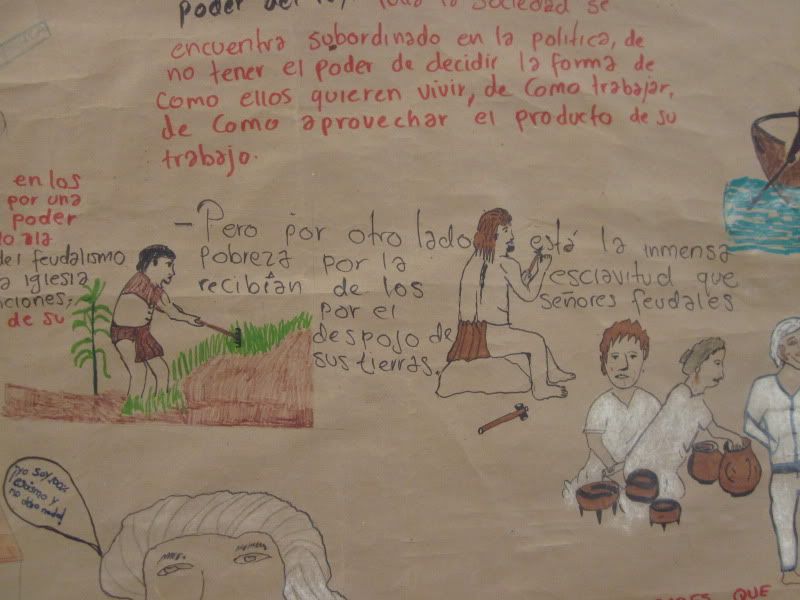 poder del rey, toda la sociedad se
encuentra subordinado en la politica, de
no tener el poder de decidir la forma de
como ellos quieren vivir, de como trabajar,
de como aprovechar el producto de su
trabajo.
en los
por una
poder
del feudalismo
iglesia
de su
- Pero por otro lado está la inmensa
pobreza por la esclavitud que
recibían de los señores feudales
por el
despojo de
sus tierras.
Yo soy
y
no
QUE